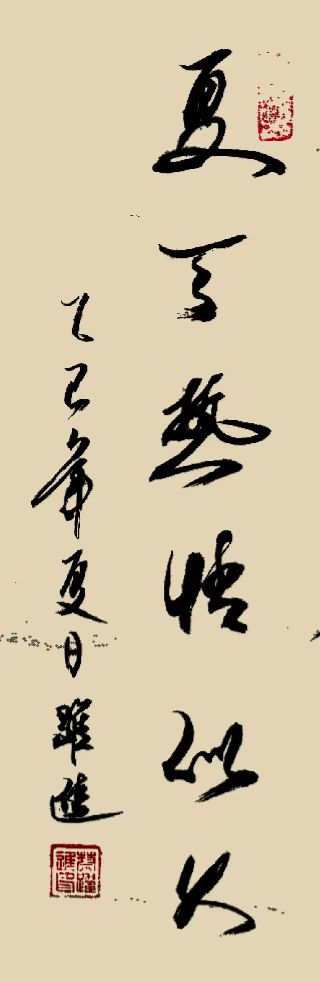 夏天热情似火
乙巳年夏日躍進